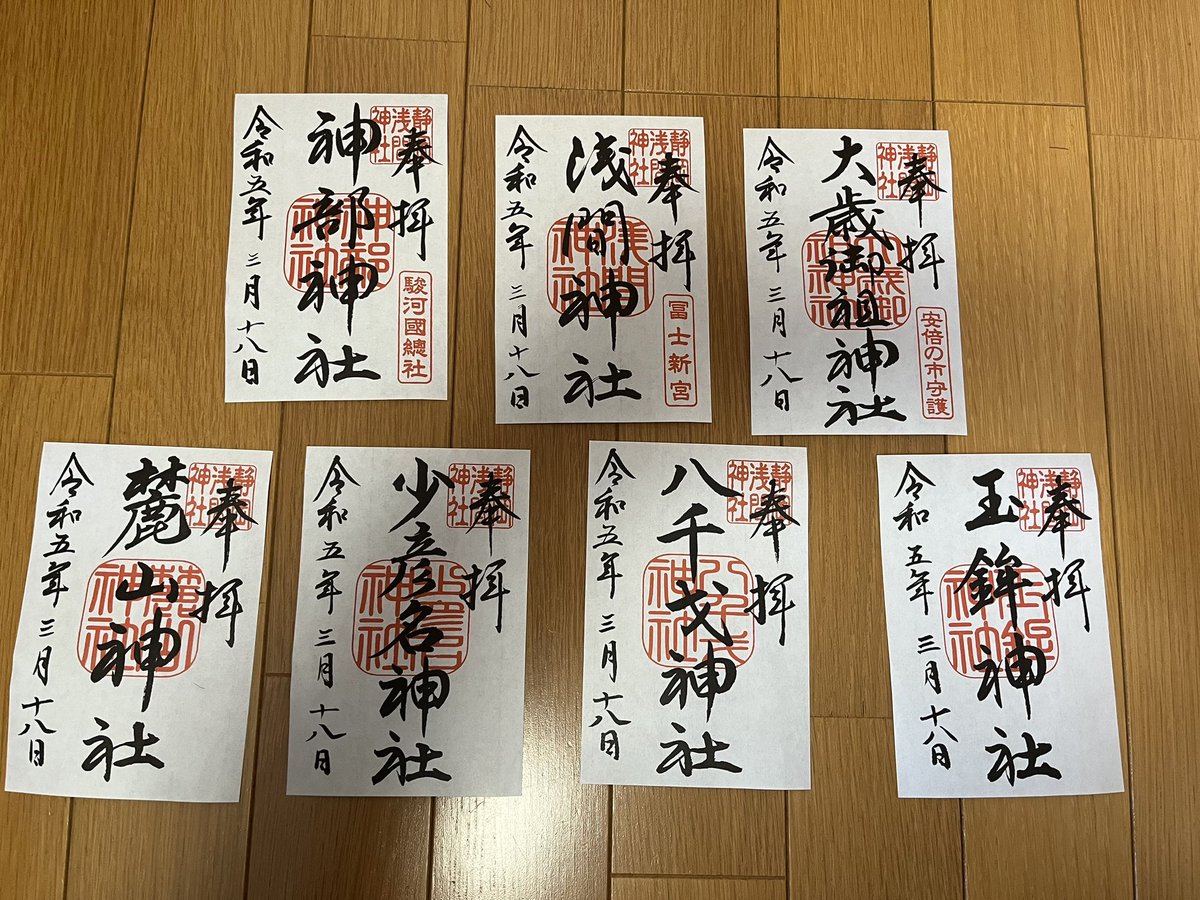 奉拝
静岡浅間神社
駿河國總社
神部神社
令和五年三月十八日
奉拝
静岡浅間神社
冨士新宮
浅間神社
令和五年三月十八日
奉拝
静岡浅間神社
安倍の市守護
大歳御祖神社
令和五年三月十八日
奉拝
静岡浅間神社
麓山神社
令和五年三月十八日
奉拝
静岡浅間神社
少彦名神社
令和五年三月十八日
奉拝
静岡浅間神社
八千戈神社
令和五年三月十八日
奉拝
静岡浅間神社
玉鉾神社
令和五年三月十八日